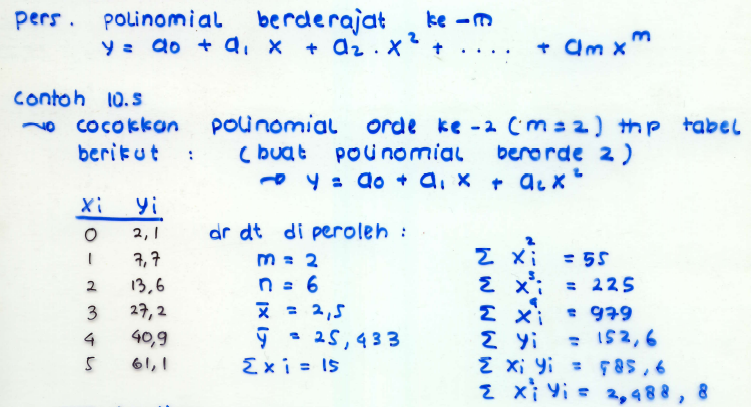 pers. polinomial berderajat ke-m
y = a0 + a1 x + a2 . x² + .... + am x^m
Contoh 10.5
~> cocokkan polinomial orde ke-2 (m=2) thp tabel
berikut : (buat polinomial berorde 2)
→ y = a0 + a1 x + a2 x²
xi yi
0 2,1
1 7,7
2 13,6
3 27,2
4 40,9
5 61,1
dr dt diperoleh :
m = 2
n = 6
x̄ = 2,5
ȳ = 25,433
Σ xi = 15
Σ xi² = 55
Σ xi³ = 225
Σ xi⁴ = 979
Σ yi = 152,6
Σ xi yi = 585,6
Σ xi² yi = 2,488,8